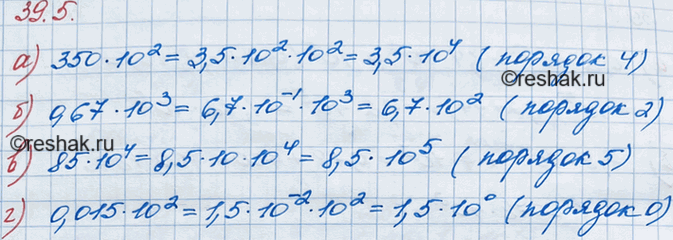 39.5.
а) 350·10² = 3,5·10²·10² = 3,5·10⁴ (порядок 4)
©reshak.ru
б) 0,67·10³ = 6,7·10⁻¹·10³ = 6,7·10² (порядок 2)
©reshak.ru
в) 85·10⁴ = 8,5·10·10⁴ = 8,5·10⁵ (порядок 5)
г) 0,015·10² = 1,5·10⁻²·10² = 1,5·10⁰ (порядок 0)